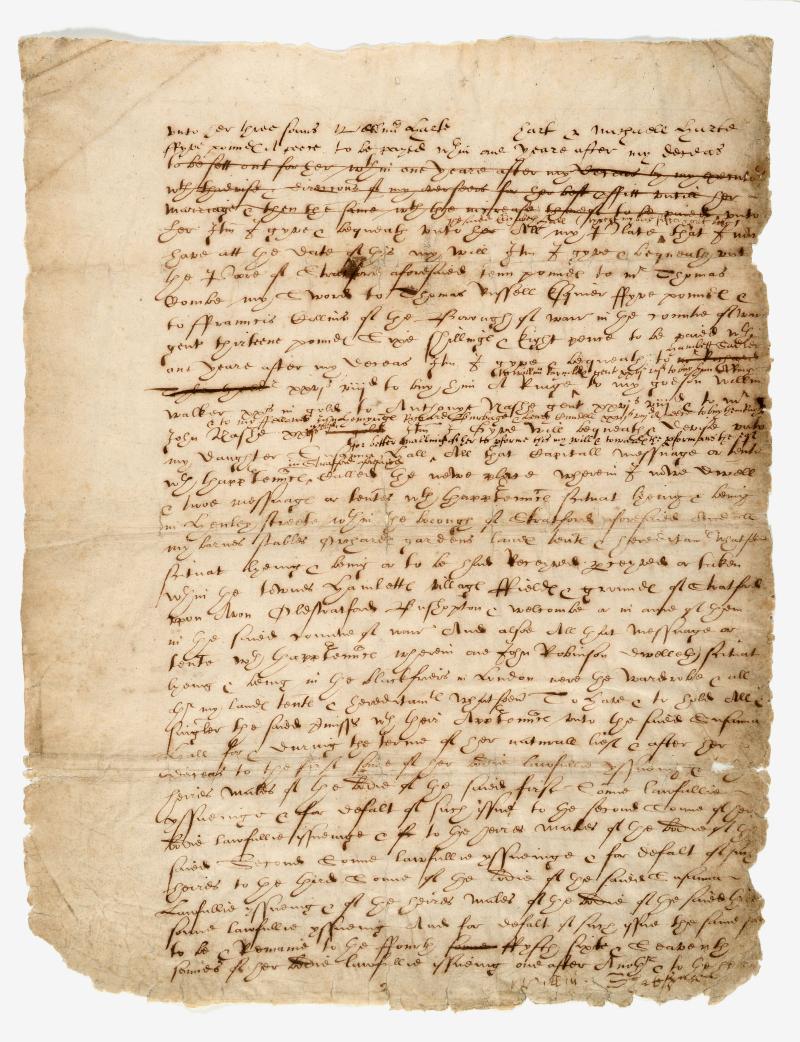 vnto her three sonns Willm Harte Hart & Michaell Harte
ffyve pounds A peece to be payed wthin one yeare after my deceas
to be sett out for her wthin one yeare after my deceas by my executors
wth thadvise & direccons of my overseers for her best proffitt vntill her
marriage & then the same wth the increase thereof to be paied vnto
the saied Elizabeth Hall (except my brod silver & gilt bole)
her Itm I gyve & bequeath vnto her All my Plate that I now
have att the Date of this my will Itm I gyve & bequeath vnto
the Poore of Stratford aforesaied tenn pounds to mr Thomas
Combe my Sword to Thomas Russell Esquier ffyve pounds &
to ffrauncis Collins of the Borough of warr in the countie of warr
gent thirteene pounds Sixe shillinges & Eight pence to be paied wthin
Hamlett Sadler
one yeare after my deceas Itm I gyve & bequeath to mr Richard
to Willm Raynoldes gent xxvjs viijd to buy him A Ringe
xxvjs viijd to buy him A Ringe to my godson Willm
Walker xxs in gold to Anthonye Nashe gent xxvjs viijd & to mr
& to my ffellowes John Hemynges Richard Burbage & Henry Cundell xxvjs viijd A peece to buy them Ringes
John Nashe xxvjs viijd Itm I Gyve will bequeath & Devise vnto
for better enabling of her to pforme this my will & towardes the pformans thereof
my daughter Susanna Hall All that Capitall messuage or tente
in Stratford aforesaied
wth thapptennces called the newe place wherein I nowe Dwell
& twoe messuages or tentes wth thapptennces scituat lyeing & being
in Henley streete wthin the borough of Stratford aforesaied And all
my barnes stables Orchardes gardens landes tentes & hereditamts whatsoever
scituat lyeing & being or to be had Receyved perceyved or taken
wthin the townes Hamlettes villages ffieldes & groundes of Stratford
vpon Avon Oldstratford Bushopton & Welcombe or in anie of them
in the saied countie of warr And alsoe All that Messuage or
tente wth thapptennces wherein one John Robinson dwelleth scituat
lyeing & being in the blackfriers in London nere the Wardrobe & all
othr my landes tentes & hereditamtes whatsoever To Have & to hold All &
singler the saied pmisses wth their Apptennces vnto the saied Susanna
Hall for & During the terme of her naturall lief & after her
deceas to the first sonne of her bodie lawfullie yssueing &
heires Males of the bodie of the saied first Sonne lawfullie
yssueinge & for defalt of such issue to the second Sonne of her
bodie lawfullie issueinge & to the heires Males of the bodie of the
saied Second Sonne lawfullie yssueinge & for defalt of such
heires to the third Sonne of the bodie of the saied Susanna
Lawfullie yssueing & of the heires Males of the bodie of the saied third
sonne lawfullie yssueing And for defalt of such issue the same soe
to be & Remaine to the ffourth sonne ffyfth sixte & Seaventh
sonnes of her bodie lawfullie issueing one after Another & to the heires